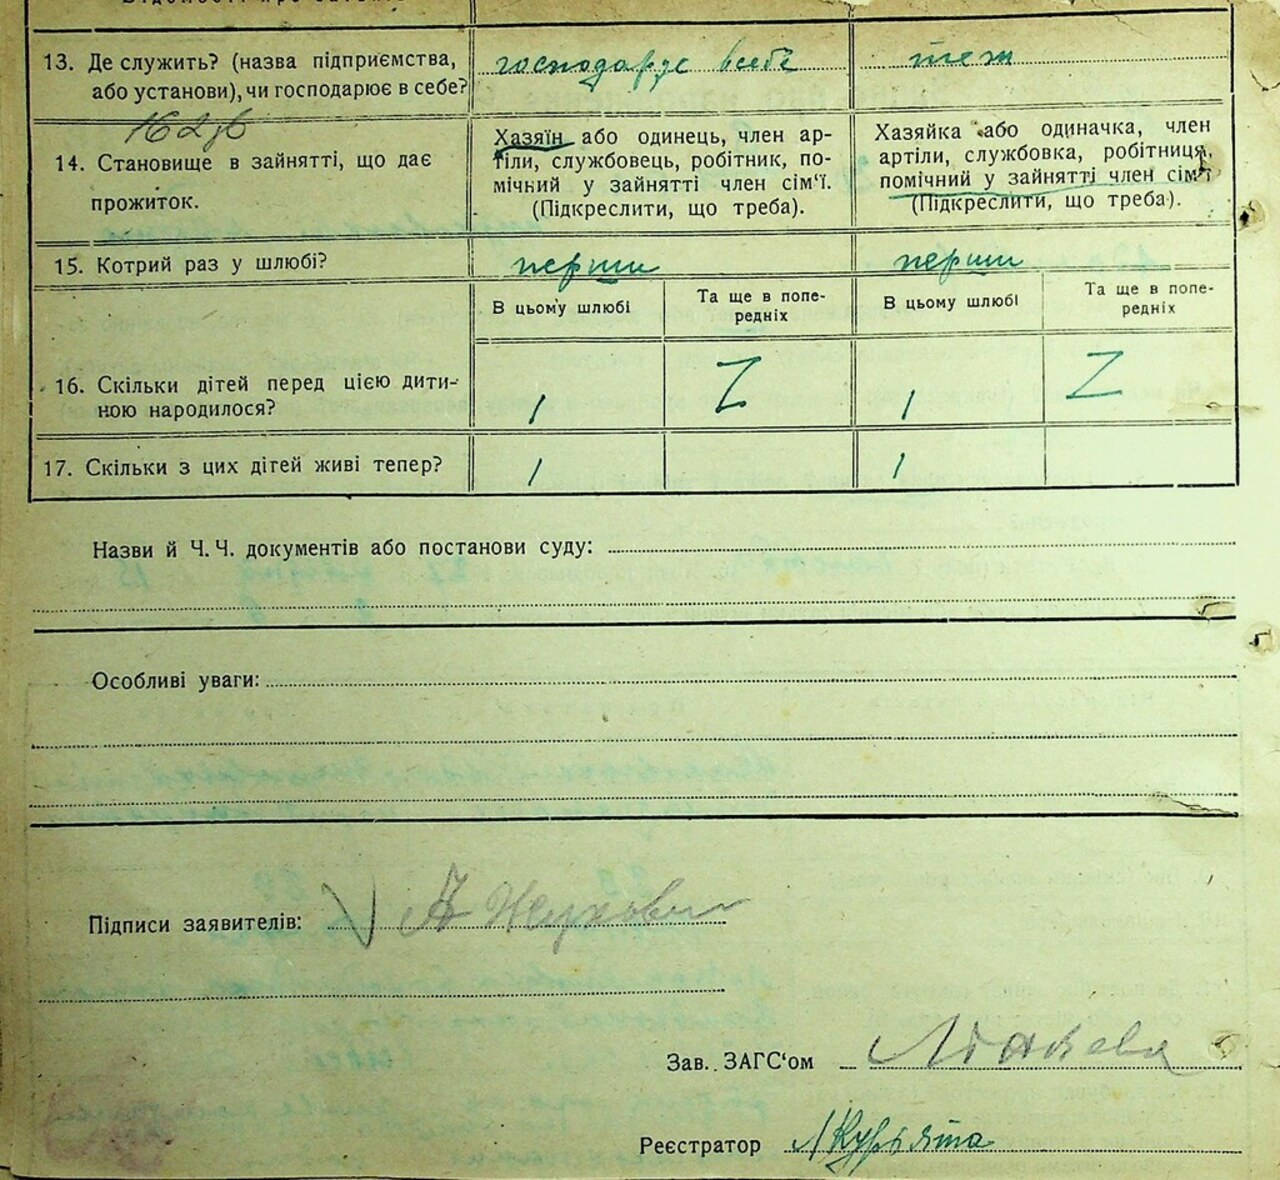 13. Де служить? (назва підприємства, або установи), чи господарює в себе?
господарує в себе
теж
14. Становище в зайнятті, що дає прожиток.
Хазяїн або одинець, член ар-
тіли, службовець, робітник, по-
мічний у зайнятті член сім'ї.
(Підкреслити, що треба).
Хазяйка або одиначка, член
артіли, службовка, робітниця,
помічний у зайнятті член сім'ї
(Підкреслити, що треба).
15. Котрий раз у шлюбі?
перши
перши
В цьому шлюбі
Та ще в попе-
редніх
В цьому шлюбі
Та ще в попе-
редніх
16. Скільки дітей перед цією дити-
ною народилося?
1
Z
1
Z
17. Скільки з цих дітей живі тепер?
1
1
Назви й Ч. Ч. документів або постанови суду:
Особливі уваги:
Підписи заявителів:
Зав. ЗАГС'ом
Реєстратор